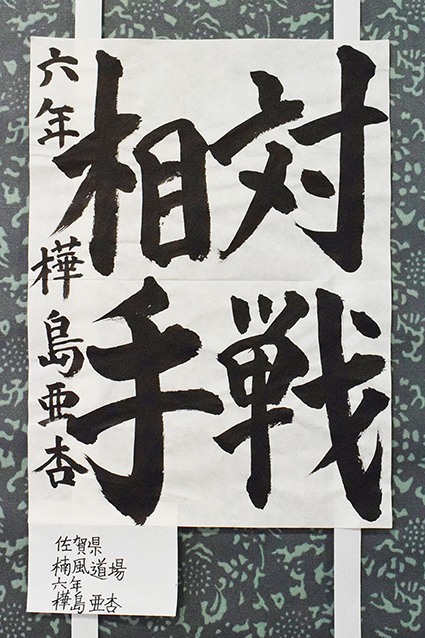 対戦
相手
六年 樺島亜杏
佐賀県
楠風道場
六年
樺島亜杏